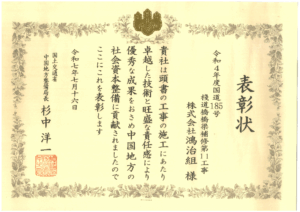 表彰状
令和4年度国道185号
桟道橋橋梁補修第11工事
株式会社鴻治組 様
貴社は頭書の工事の施工にあたり
卓越した技術と旺盛な責任感により
優秀な成果をおさめ中国地方の
社会資本整備に貢献されましたので
ここにこれを表彰します
令和七年七月十六日
国土交通省
中国地方整備局長 杉中洋一